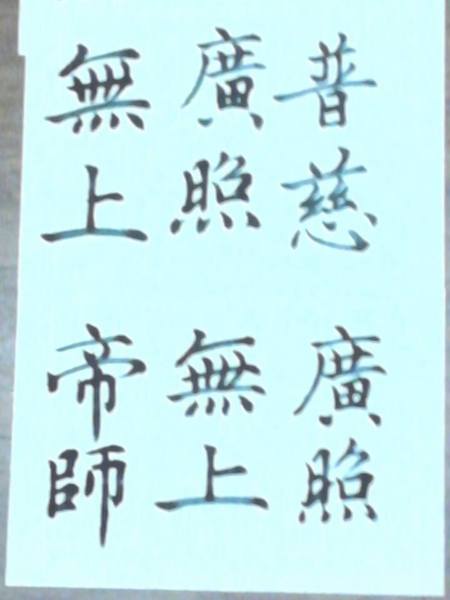 普慈廣照
廣照無上
無上帝師